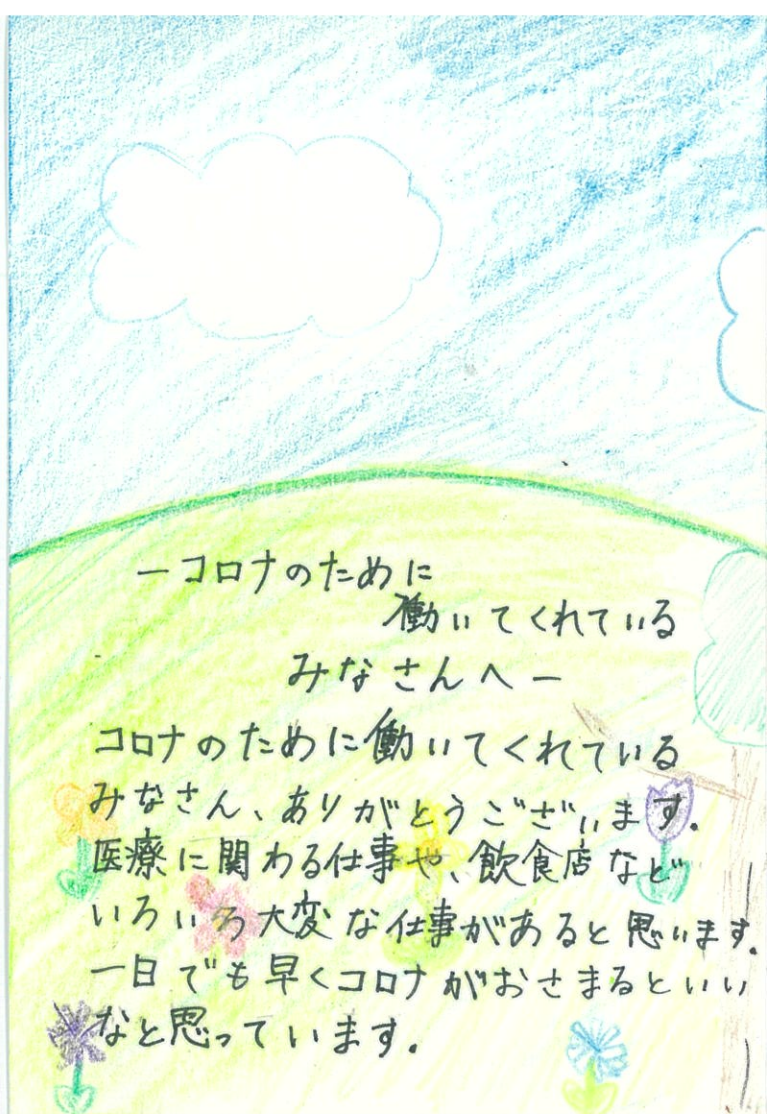 ーコロナのために
働いてくれている
みなさんへー
コロナのために働いてくれている
みなさん、ありがとうございます.
医療に関わる仕事や、飲食店など
いろいろ大変な仕事があると思います.
一日でも早くコロナがおさまるといい
なと思っています.